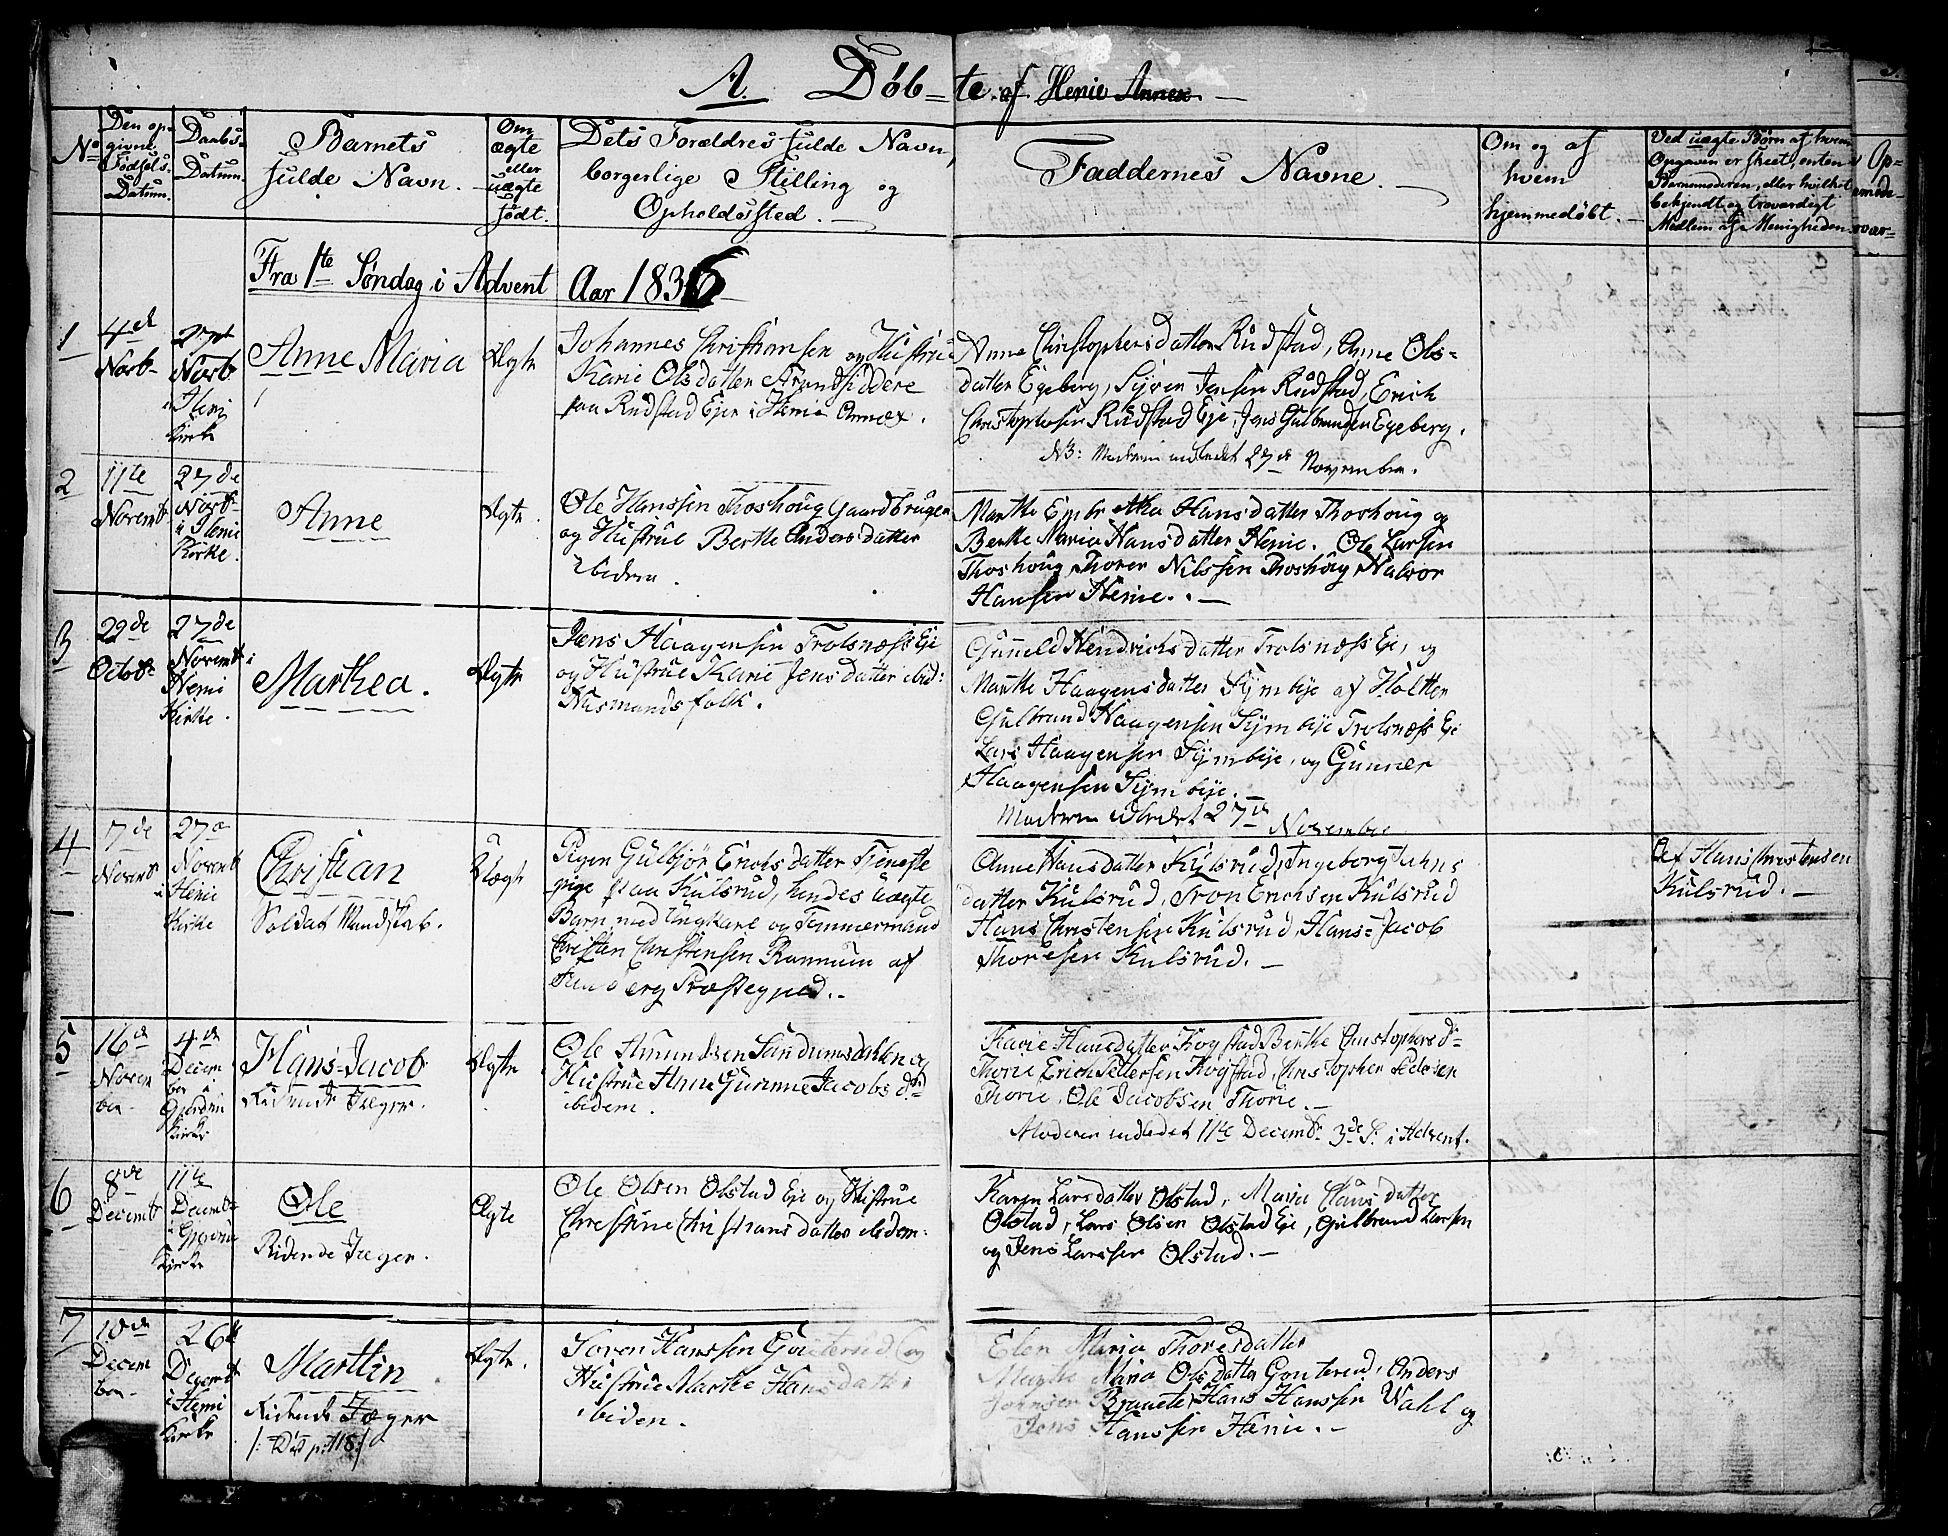 A. Døb-te af Henie Annex.
No
Den op-
givne
Fødsels-
Datum.
Daabs-
Datum.
Barnets
fulde Navn.
Om
ægte
eller
uægte
født.
Dets Forældres fulde Navn,
borgerlige Stilling og
Opholdssted.
Faddernes Navne.
Om og af
hvem
hjemmedøbt.
Ved uægte Børn af hvem
Opgaven er skeet, enten
Barnemoderen, eller hvilket
bekjendt og troværdigt
Medlem af Menigheden.
Fra 1te Søndag i Advent Aar 1836
1
4de
Novb
27de
Novb
i Heni
Kirke
Anne Maria
Ægte
Johannes Christiansen og Hustrue
Karie Olsdatter Strandsiddere
paa Rudstad Ejer i Henie Annex.
Anne Christophersdatter Rudstad, Anne Ols-
datter Egeberg, Syver Jensen Rudstad, Erich
Christophersen Rudstad Eje, Jens Gulbrandsen Egeberg.
NB: Moderen indledet 27de November.
2
11te
Novemb
27de
Novb
i Heni
Kirke.
Anne
Ægte.
Ole Hanssen Thoshoug Gaardbruger
og Hustrue Berthe Andersdatter
ibidem.
Marthe Hansdatter Thoshoug og
Berthe Maria Hansdatter Henie. Ole Larsen
Thoshoug, Thorer Nilssen Thoshoug, Halvor
Hansen Henie.
3
29de
Octob
27de
Novemb i
Heni
Kirke.
Marthea.
Ægte
Jens Haagensen Trolsnæss Eje
og Hustrue Karie Jensdatter ibid:
Husmandsfolk.
Gunneld Hendrichsdatter Trolsnæss Eje, og
Marthe Haagensdatter Symbye af Holtter
Gulbrand Haagensen Symbye Trolsnæss Eje
Lars Haagensen Symbye, og Gunner
Haagensen Symbye.
Moderen indledet 27de November
4
7de
Novemb
27de
Novemb
i Heni
Kirke
Christian
Soldat Mandskab.
Uægte
Pigen Gulbjør Erichsdatter Tjeneste
pige paa Kulsrud, hendes uægte
Barn med Ungkarl og Tømmermand
Christen Christensen Rammum af
Præstegjeld.
Anne Hansdatter Kulsrud, Ingeborg
datter Kulsrud, Tron Erichsen Kulsrud
Hans Christensen Kulsrud, Hans-Jacob
Thoresen Kulsrud.
Af Hans Thostensen
Kulsrud.
5
16de
Novem
ber
4de
Decem
ber i
Gjerdrum
Kirke
Hans-Jacob
Ridende Jæger.
Ægte
Ole Amundsen Sandumsdahlen og
Hustrue Anne Gurinne Jacobsd:
ibidem.
Karie Hansdatter Kogstad Berthe Christophersd-
Thorie, Erich Pettersen Kogstad, Christopher Pedersen
Thorie, Ole Jacobsen Thorie.
Moderen indledet 11te Decemb 3de S. i Advent.
6
8de
Decemb
11te
Decemb
i
Kirke
Ole
Ridende Jæger.
Ægte
Ole Olsen Olstad Eje og Hustrue
Christine Christiansdatter ibidem.
Karen Larsdatter Olstad, Maria Clausdatter
Olstad, Lars Olsen Olstad Eje, Gulbrand Larsen
og Jens Larssen Olstad.
7
10de
Decem
ber
26de
Decemb
i Heni
Kirke
Marthin.
Ridende Jæger
Ægte.
Soren Hanssen og
Hustrue Marthe Hansdatter
ibidem.
Elen Maria Thoresdatter
Maria Olsdatter Gonterud, Anders
Johnsen Hans Hanssen Wahl og
Jens Hanssen Henie.